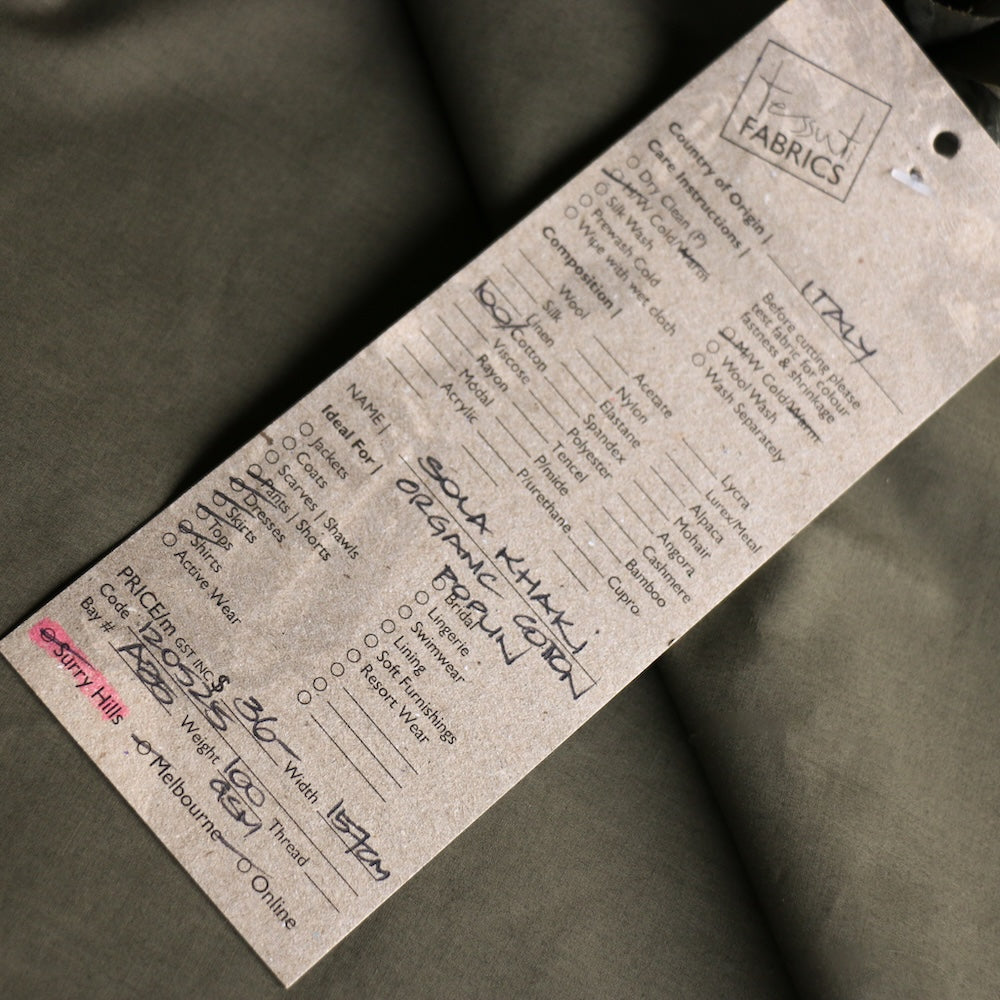 Tessuti
FABRICS
Country of Origin | ITALY
Care Instructions |
Before cutting please
test fabric for colour
fastness & shrinkage
Dry Clean (P)
H/W Cold/Warm
Silk Wash
Prewash Cold
Wipe with wet cloth
M/W Cold/Warm
Wool Wash
Wash Separately
Composition |
Wool
Silk
Linen
100% Cotton
Viscose
Rayon
Modal
Acrylic
Acetate
Nylon
Elastane
Spandex
Polyester
Tencel
P/mide
P/urethane
Lycra
Lurex/Metal
Alpaca
Mohair
Angora
Cashmere
Bamboo
Cupro
NAME | SOLA KHAKI
ORGANIC COTTON
POPLIN
Ideal For |
Jackets
Coats
Scarves | Shawls
Pants | Shorts
Dresses
Skirts
Tops
Shirts
Active Wear
Bridal
Lingerie
Swimwear
Lining
Soft Furnishings
Resort Wear
PRICE/m GST INC $ 36- Width 157cm
Code 120525 Weight 100 GSM Thread
Bay #
Surry Hills Melbourne Online